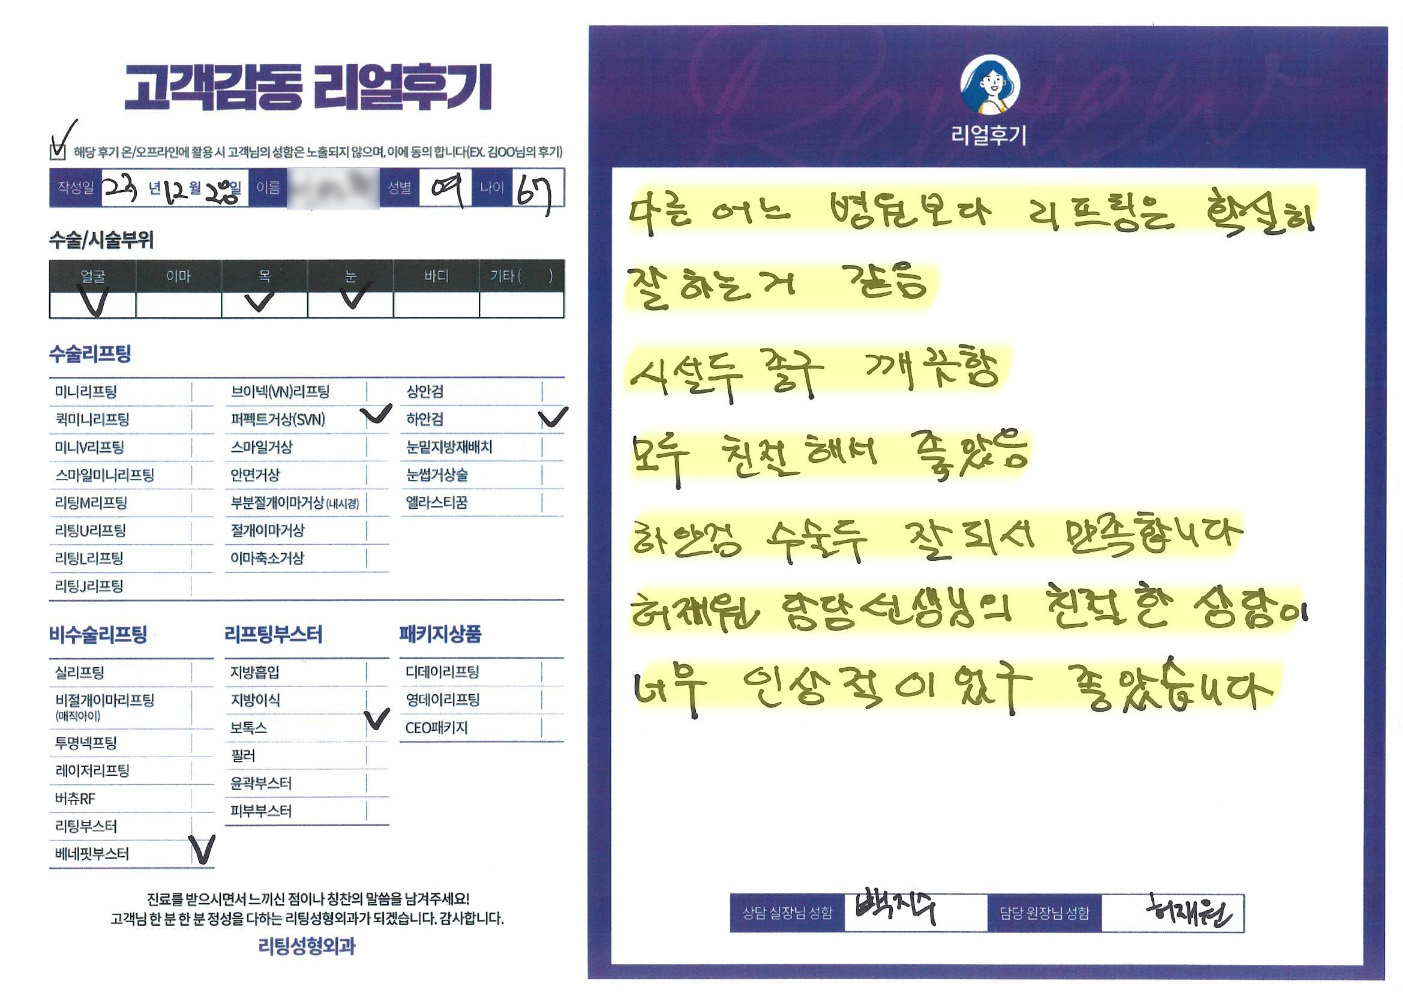 고객감동 리얼후기
해당 후기 온/오프라인에 활용 시 고객님의 성함은 노출되지 않으며, 이에 동의 합니다(EX. 김OO님의 후기)
작성일 23 년 12 월 28일 이름 성별 여 나이 67
수술/시술부위
얼굴 이마 목 눈 바디 기타 ( )
수술리프팅
미니리프팅
퀵미니리프팅
미니V리프팅
스마일미니리프팅
리팅M리프팅
리팅U리프팅
리팅L리프팅
리팅J리프팅
브이넥(VN)리프팅
퍼펙트거상(SVN)
스마일거상
안면거상
부분절개이마거상 (내시경)
절개이마거상
이마축소거상
상안검
하안검
눈밑지방재배치
눈썹거상술
엘라스티꿈
비수술리프팅
실리프팅
비절개이마리프팅
(매직아이)
투명넥프팅
레이저리프팅
버츄RF
리팅부스터
베네핏부스터
리프팅부스터
지방흡입
지방이식
보톡스
필러
윤곽부스터
피부부스터
패키지상품
디데이리프팅
영데이리프팅
CEO패키지
진료를 받으시면서 느끼신 점이나 칭찬의 말씀을 남겨주세요!
고객님 한 분 한 분 정성을 다하는 리팅성형외과가 되겠습니다. 감사합니다.
리팅성형외과
Review
리얼후기
다른 어느 병원보다 리프팅은 확실히
잘 하는거 같음
시설두 좋구 깨끗함
모두 친절해서 좋았음
하안검 수술두 잘되서 만족합니다
허재원 담담선생님의 친절한 상담이
너무 인상적이었구 좋았습니다
상담 실장님 성함 백지수 담당 원장님 성함 허재원